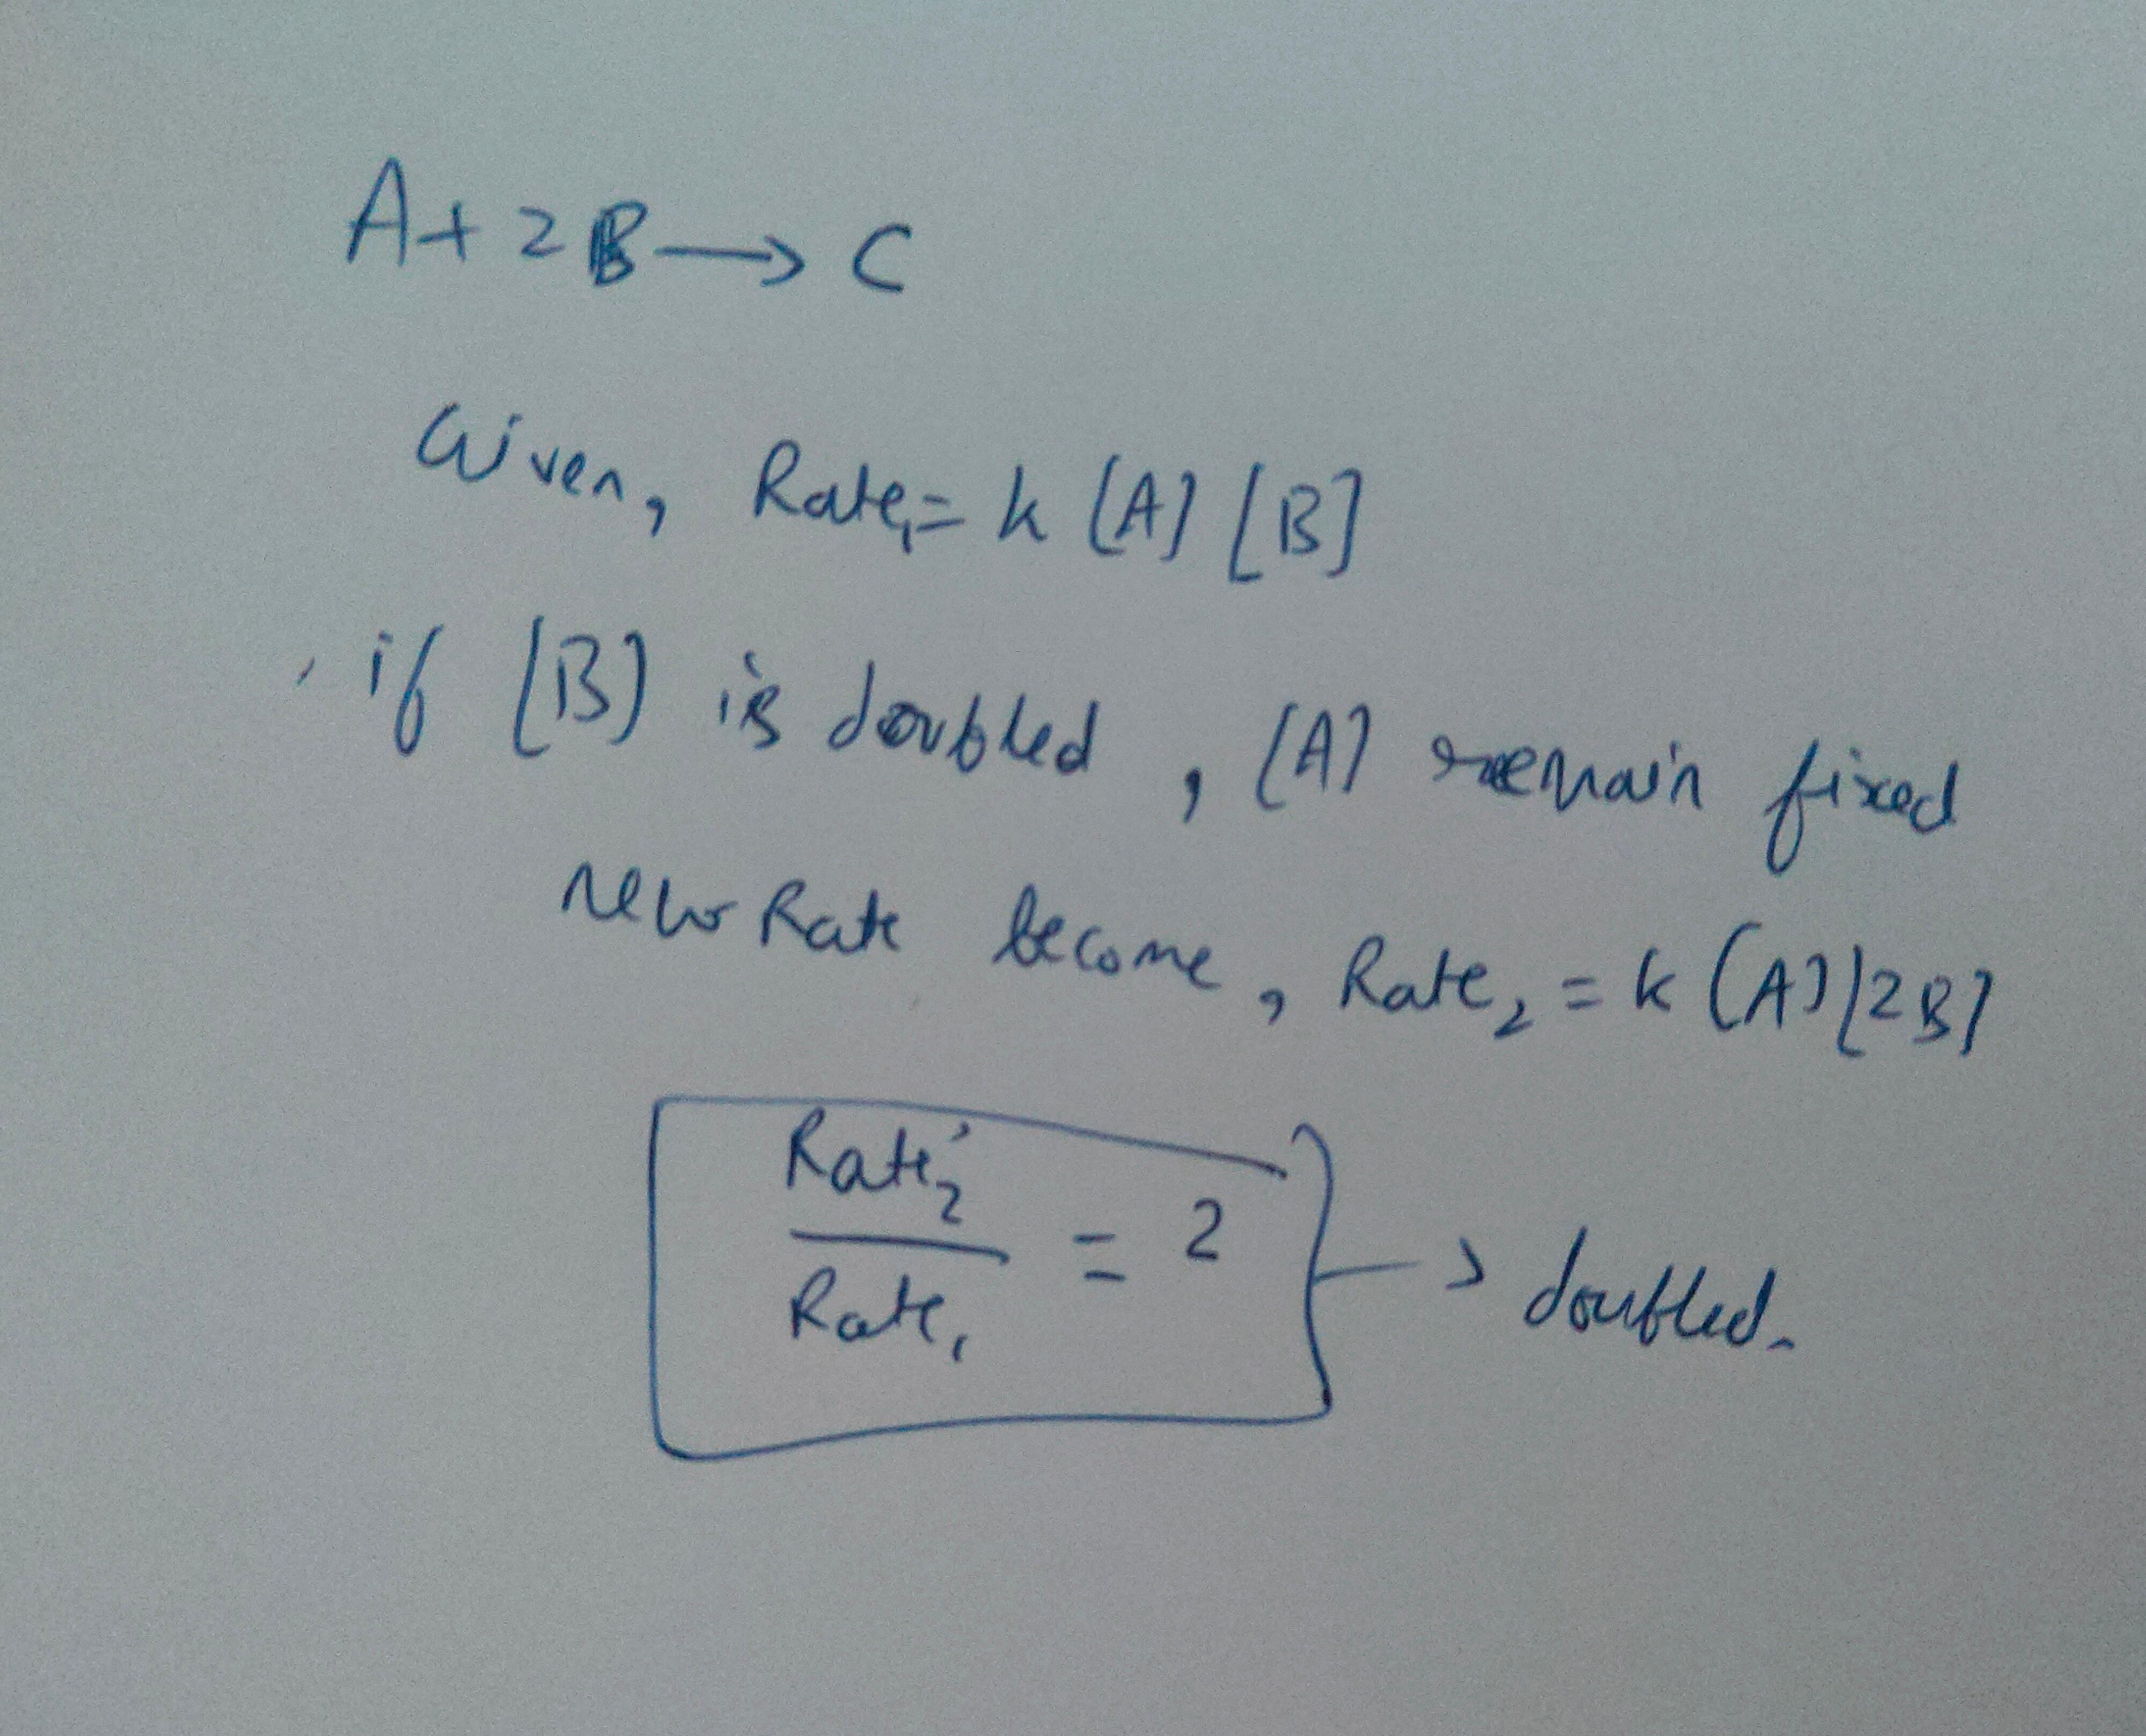 A + 2B → C
Given, Rate₁ = k [A] [B]
if [B] is doubled, [A] remain fixed
new Rate become, Rate₂ = k [A] [2B]
Rate₂
Rate₁ = 2 → doubled.